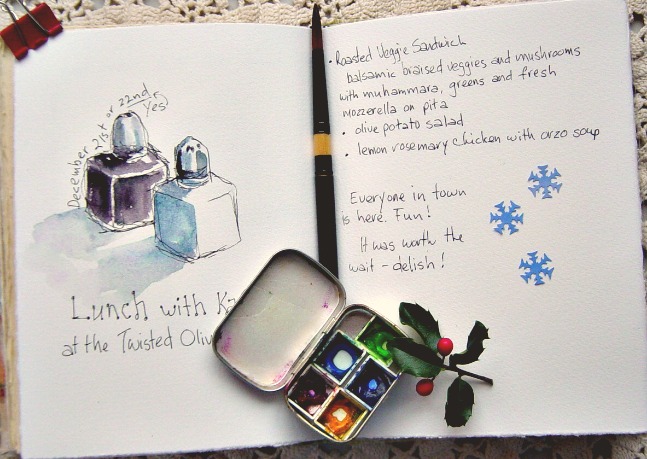 December 21st or 22nd.
Yes
Lunch with
at the Twisted
• Roasted Veggie Sandwich
balsamic braised veggies and mushrooms
with muhammara, greens and fresh
mozzerella on pita
• olive potato salad
• lemon rosemary chicken with orzo soup
Everyone in town
is here. Fun!
It was worth the
wait - delish!